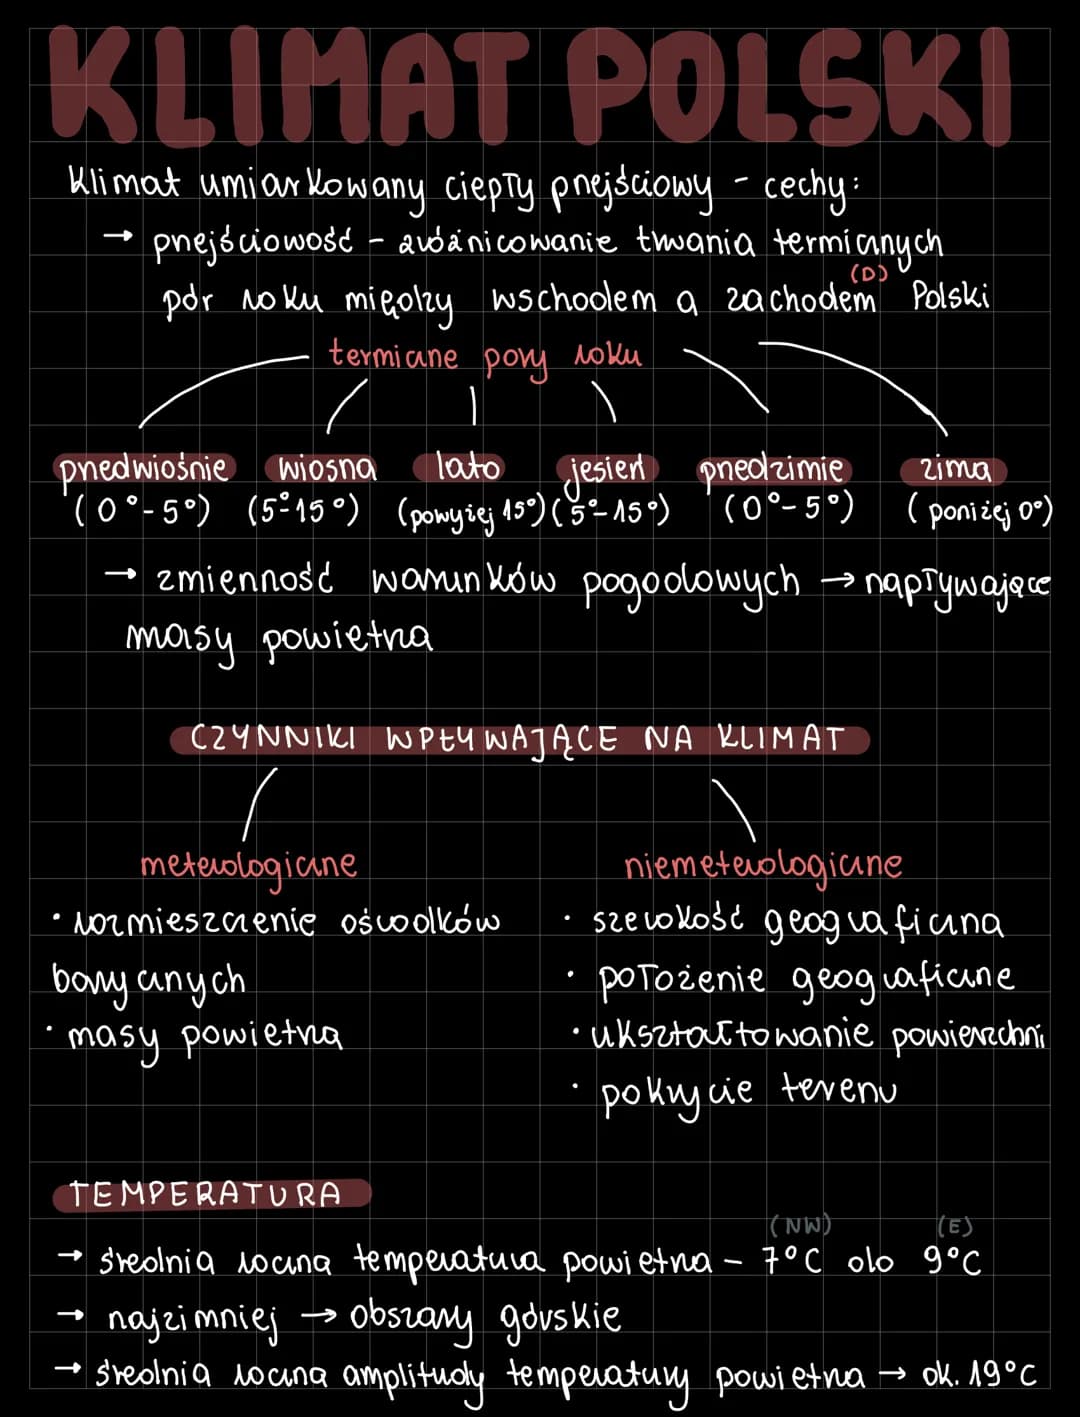 KLIMAT POLSKI
Klimat umiarkowany ciepły przejściowy - cechy:
→ przejściowość - zróżnicowanie trwania termicznych
(D)
pór roku między wschodem a zachodem Polski
termiczne pory roku
przedwiośnie wiosna lato jesień przedzimie zima
(0°-5°) (5°-15°) (powyżej 15°) (5°-15°) (0°-5°) (poniżej 0°)
→ zmienność warunków pogodowych → napływające
masy powietrza
CZYNNIKI WPŁYWAJĄCE NA KLIMAT
meteorologiczne niemeteorologiczne
• rozmieszczenie ośrodków • szerokość geograficzna
barycznych • położenie geograficzne
• masy powietrza • ukształtowanie powierzchni
• pokrycie terenu
TEMPERATURA
(NW) (E)
→ średnia roczna temperatura powietrza - 7°C do 9°C
→ najzimniej → obszary górskie
→ średnia roczna amplitudy temperatury powietrza → ok. 19°C